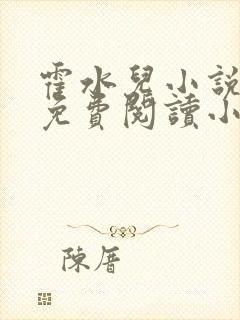 霍水兒小說
免費閱讀小
陳厝